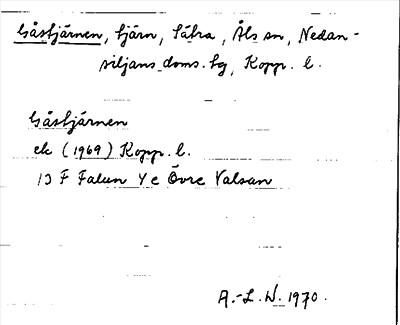 Gåstjärnen, tjärn, Säbra, Åls sn, Nedan-
siljans doms. hg, Kopp. l.
Gåstjärnen
ek (1969) Kopp. l.
13 F Falun 4 c Övre Valsan
A.-L. W. 1970.